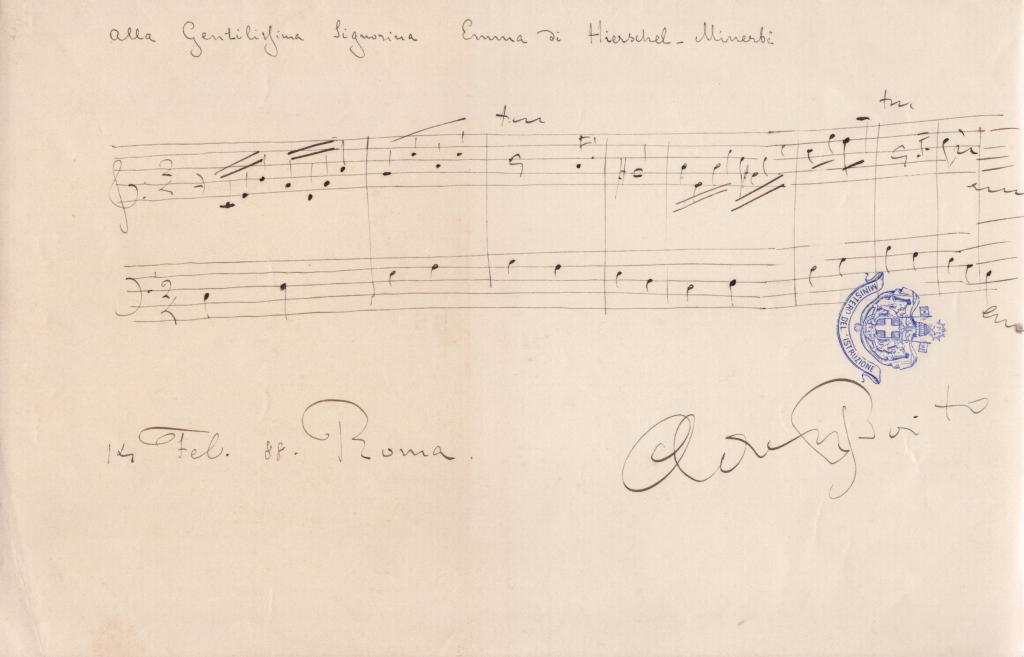 alla Gentilissima Signorina Emma di Hierschel-Minerbi
tr
tr
MINISTERO DELL'ISTRUZIONE
14 Feb. 88. Roma.
Arrigo Boito